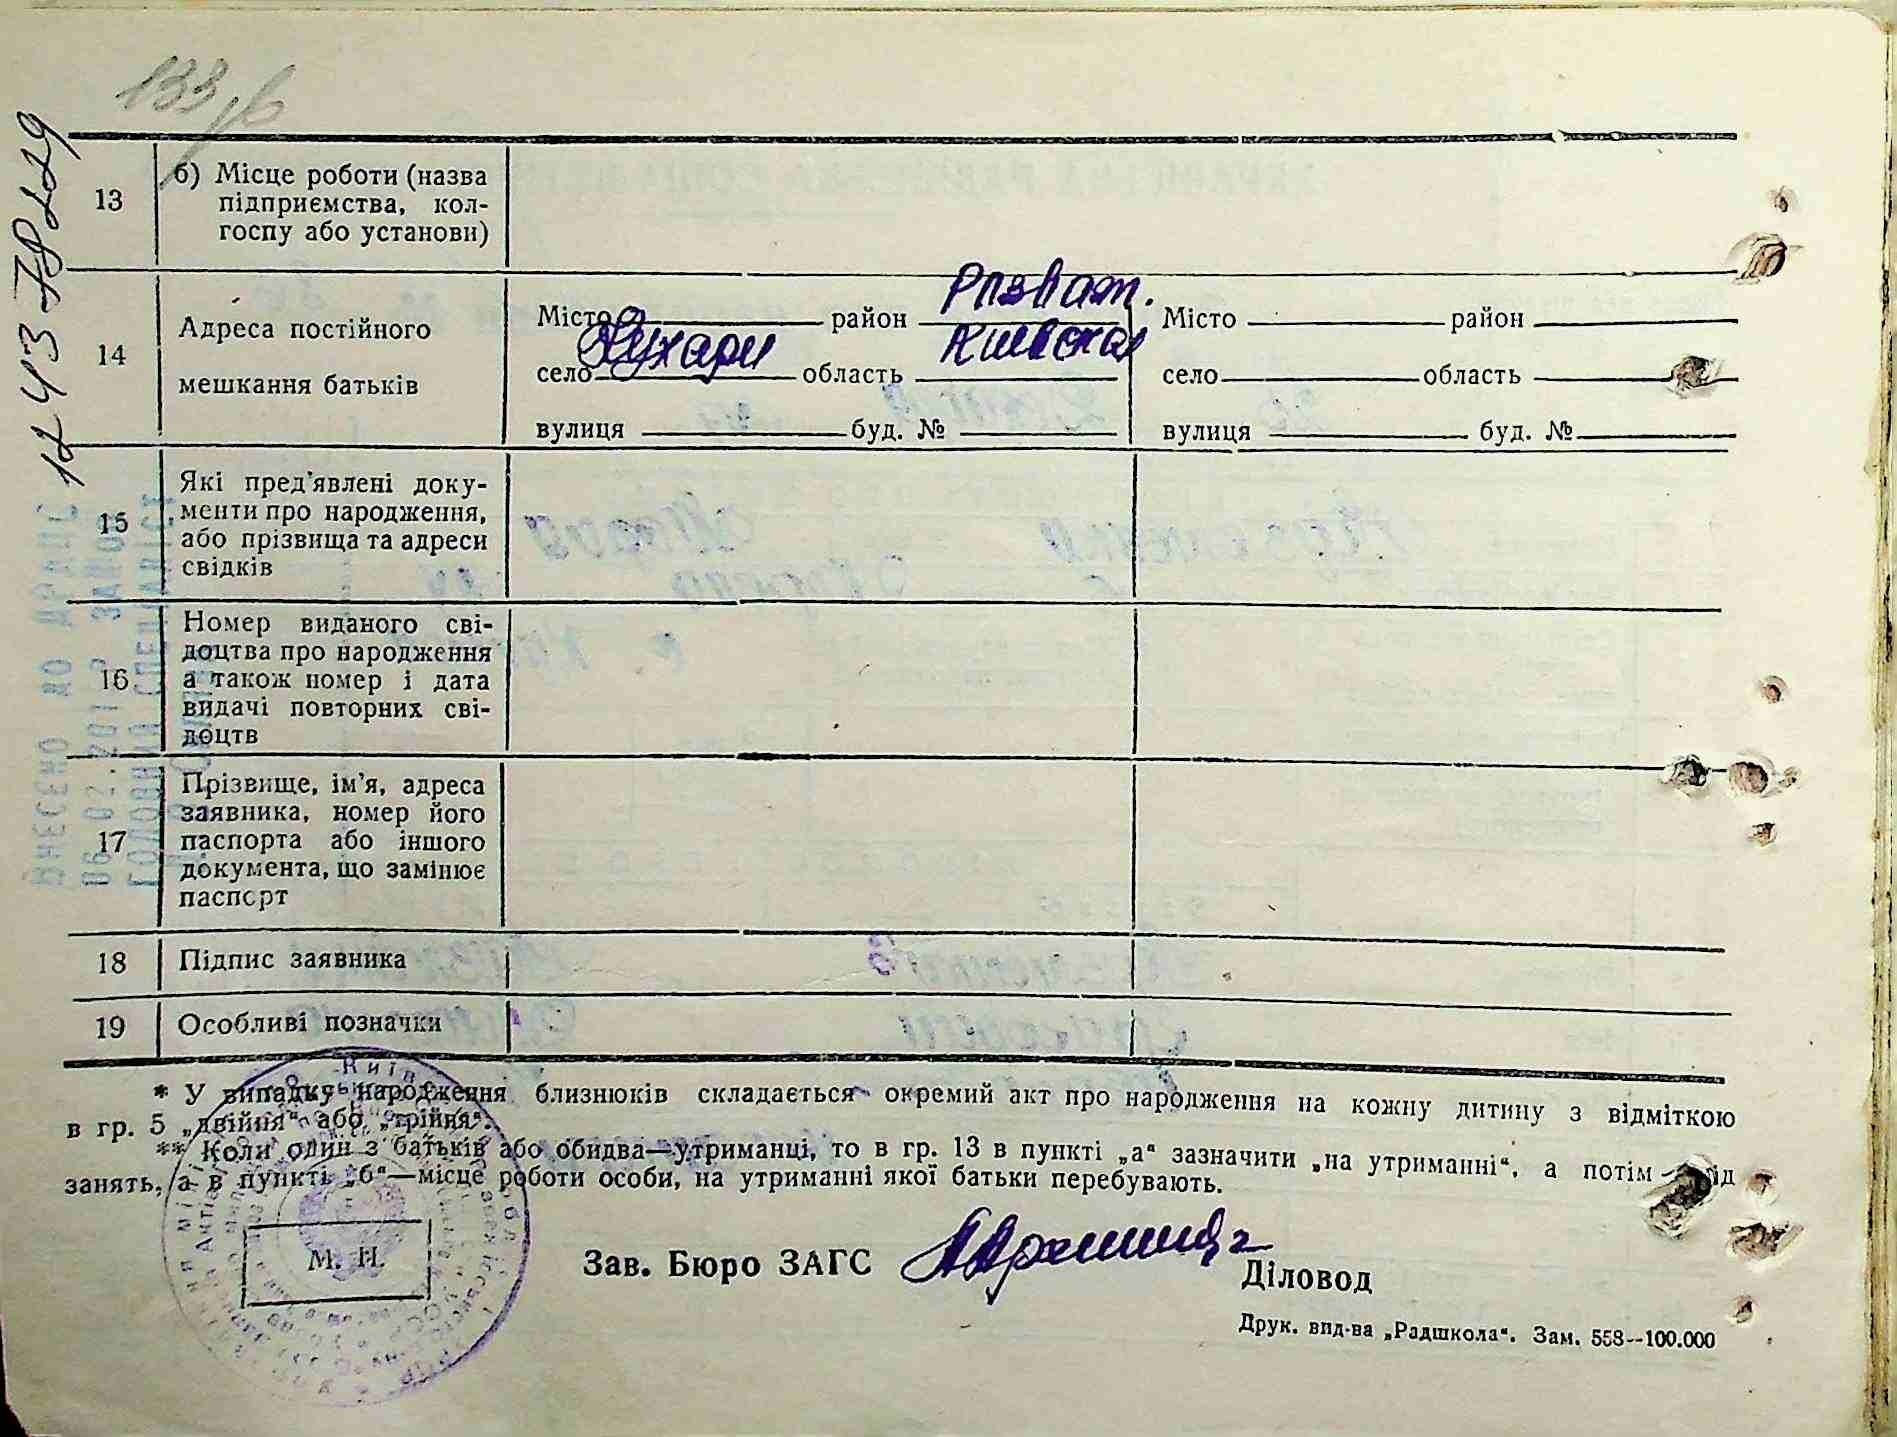 133
12 43-78229
13
б) Місце роботи (назва
підприємства, кол-
госпу або установи)
14
Адреса постійного
мешкання батьків
Місто район Розваж.
село Кухари область Киівская
вулиця буд. №
Місто район
село область
вулиця буд. №
15
Які пред'явлені доку-
менти про народження,
або прізвища та адреси
свідків
16
Номер виданого сві-
доцтва про народження
а також номер і дата
видачі повторних сві-
доцтв
17
Прізвище, ім'я, адреса
заявника, номер його
паспорта або іншого
документа, що замінює
паспорт
18
Підпис заявника
19
Особливі позначки
* У випадку народження близнюків складається окремий акт про народження на кожну дитину з відміткою
в гр. 5 „двійня“ або „трійня“.
** Коли один з батьків або обидва—утриманці, то в гр. 13 в пункті „а“ зазначити „на утриманні“, а потім рід
занять, а в пункті „б“—місце роботи особи, на утриманні якої батьки перебувають.
М. П.
Зав. Бюро ЗАГС
Діловод
Друк. вид-ва „Радшкола“. Зам. 558--100.000